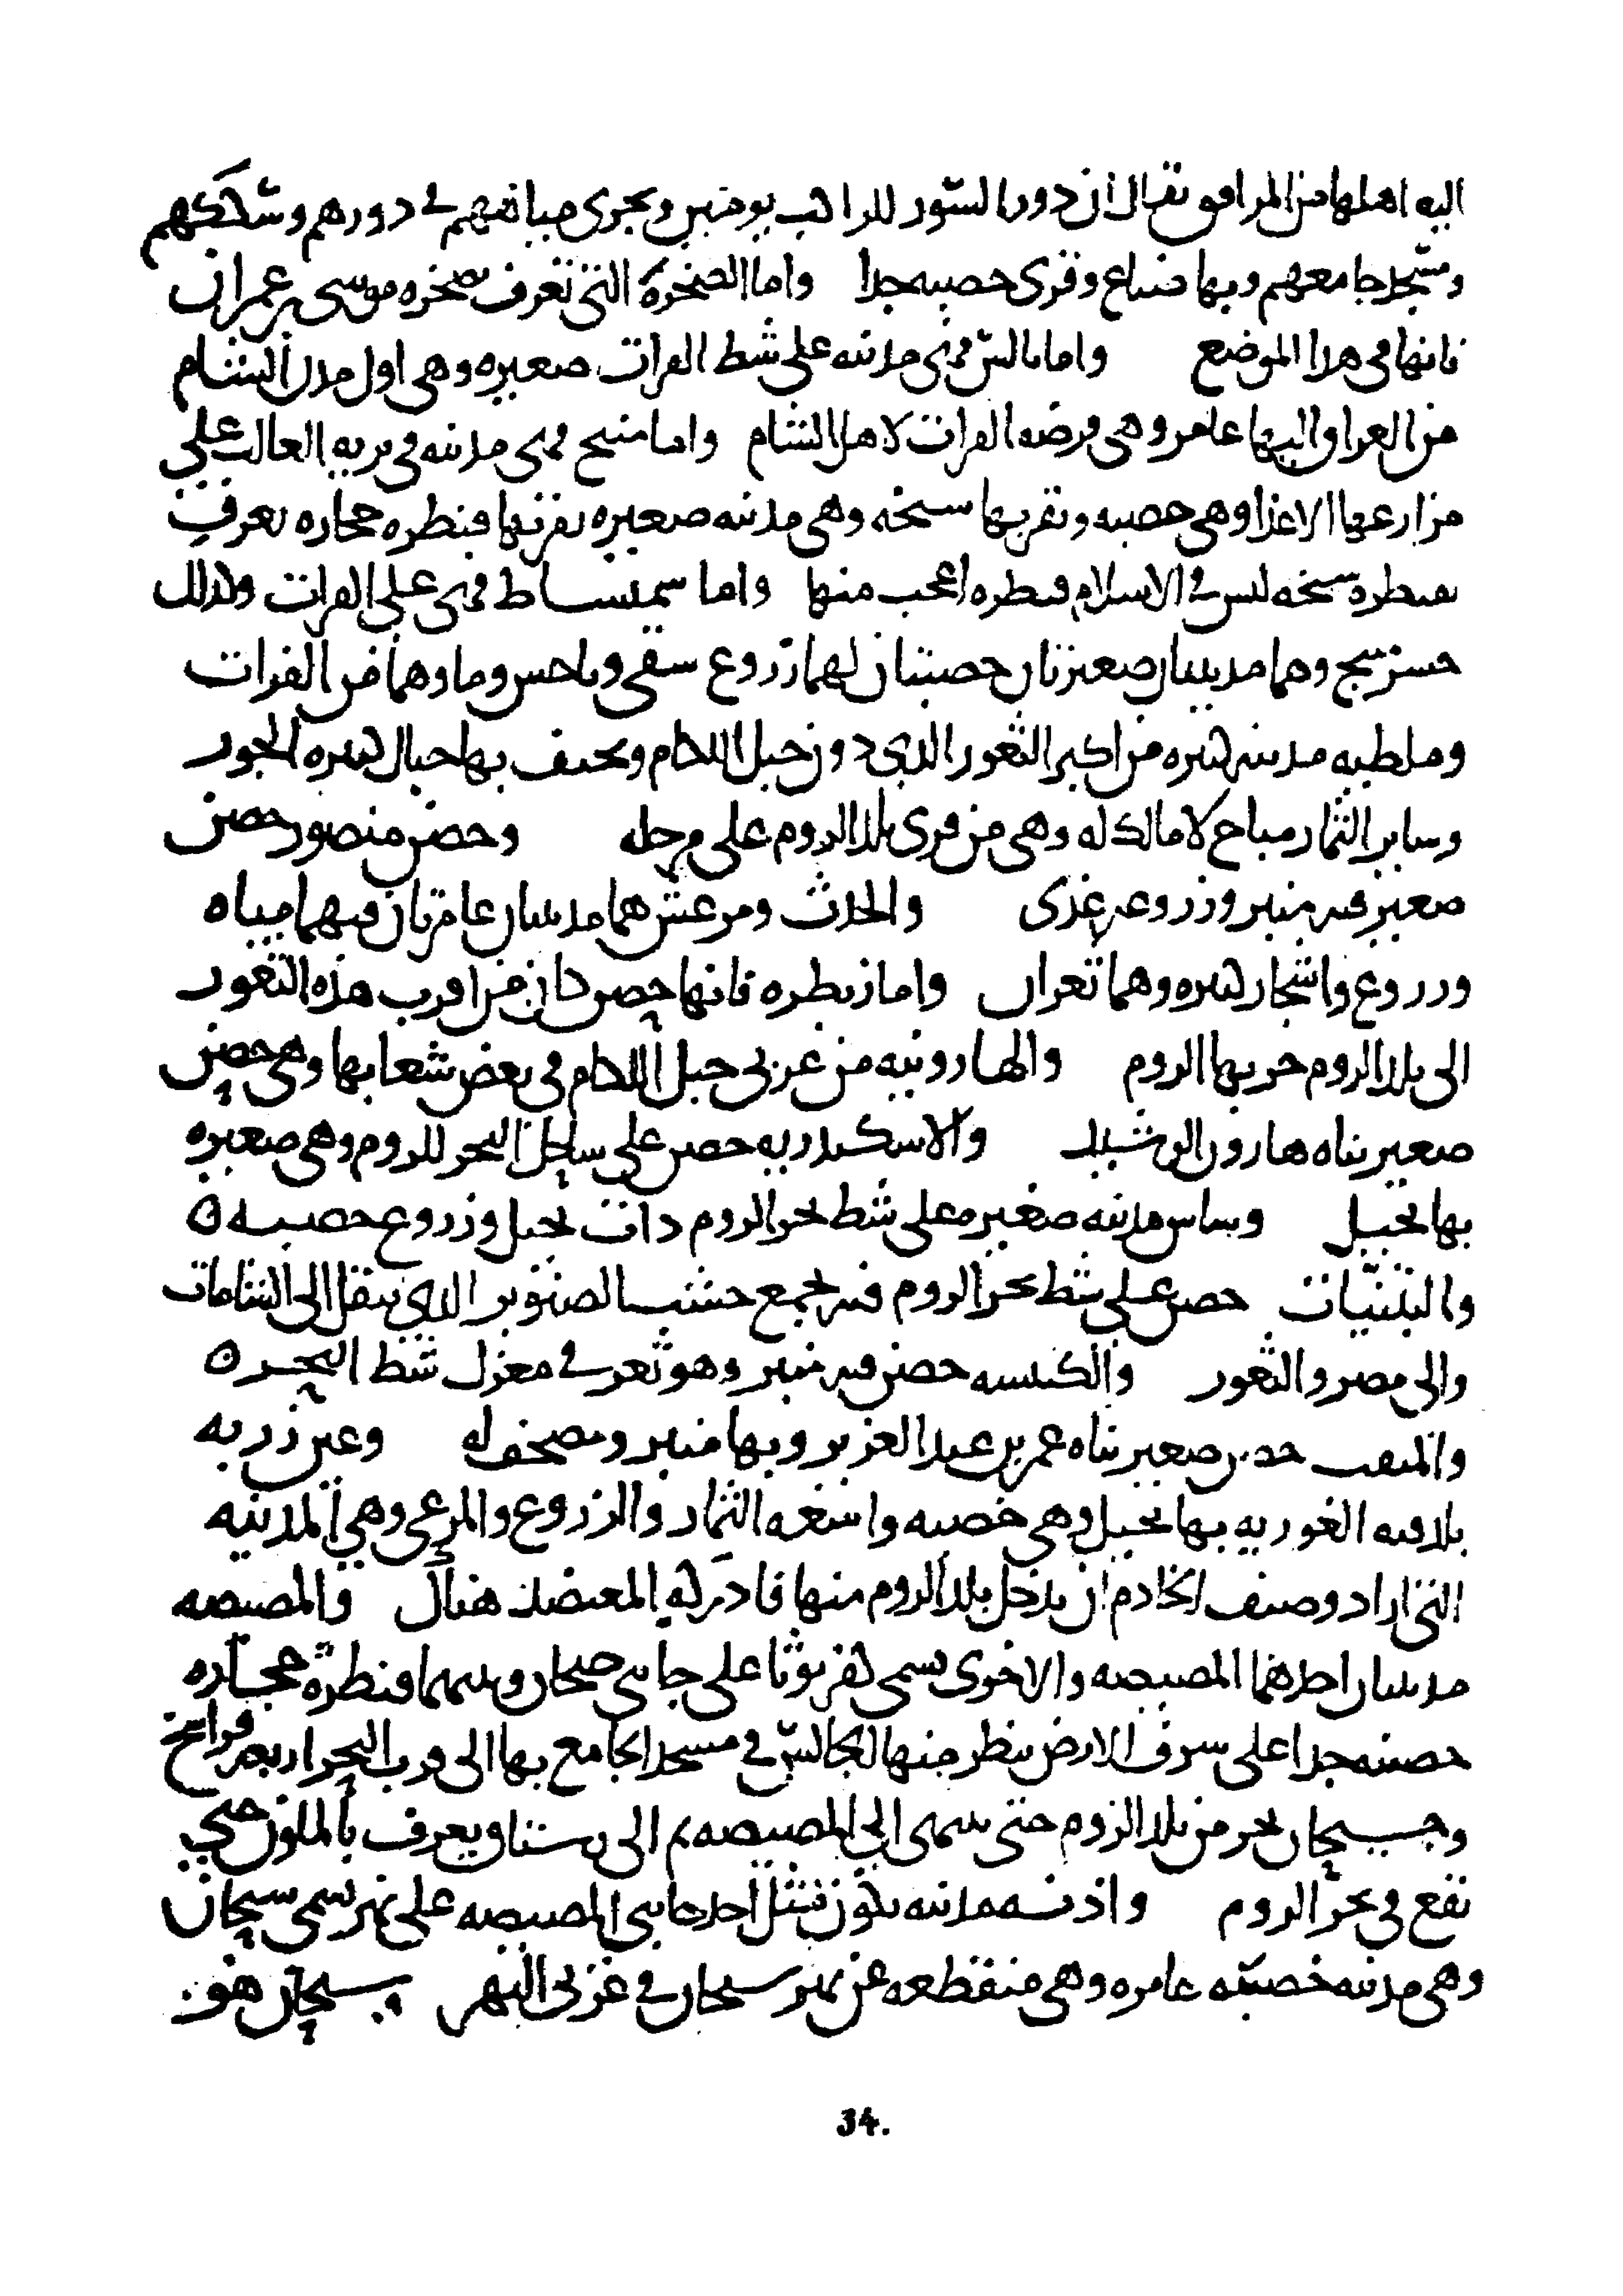 اليه اهلها من المرافق يقال ان دور السور للراهب يومين ويجري مياههم في دورهم وسككهم
ومسجد جامعهم وبها ضياع وقرى خصبه جدا واما الصخرة التي تعرف بصخره موسى بن عمران
فانها في هدا الموضع واما بالس فهي مدينه على شط الفرات صغيره وهي اول مدن الشام
من العراق اليها عامر وهي فرضه الفرات لاهل الشام واما منبج فهي مدينه في بريه الغالب على
مزارعها الاعذا وهي خصبه وبقربها سنجه وهي مدينه صغيره بقربها قنطره حجاره تعرف
بقنطره سنجه ليس في الاسلام قنطره اعجب منها واما سميساط فهي على الفرات ولذلك
جسر منبج وهما مدينتان صغيرتان خصبتان لهما زروع سقي وباخس وماوهما من الفرات
وملطيه مدينه كبيره من اكبر الثغور الذي دون جبل اللكام ويحتف بها جبال كثيره الجوز
وساير الثمار مباح لا مالك له وهي من قرى بلد الروم على مرحله وحصن منصور حصن
صغير فيه منبر وزروعه عذى والحدث ومرعش هما مدينتان عامرتان فيهما مياه
وزروع واشجار كثيره وهما ثغران واما زبطره فانها حصن كان من اقرب هذه الثغور
الى بلد الروم خربها الروم والهارونيه من غربي جبل اللكام في بعض شعابها وهي حصن
صغير بناه هارون الرشيد والاسكندريه حصن على ساحل البحر للروم وهي صغيره
بها نخيل وبياس مدينه صغيره على شط بحر الروم دات نخيل وزروع خصبه ٥
والتينات حصن على شط بحر الروم فيه مجمع خشب الصنوبر الدي ينقل الى الشامات
والى مصر والثغور والكنيسه حصن فيه منبر وهو ثغر في معزل شط البحر ٥
والمثقب حصن صغير بناه عمر بن عبد العزيز وبها منبر ومصحف له وعين زربه
بلد فيه الغوريه بها نخيل وهي خصبه واسعه الثمار والزروع والمرعى وهي المدينه
التي اراد وصيف الخادم ان يدخل بلد الروم منها فادركه المعتضد هناك والمصيصه
مدينتان احدهما المصيصه والاخرى تسمى كفربوثا على جانبي جيحان وبينهما قنطرة حجاره
حصينه جدا على شرف الارض ينظر منها الجالس في مسجد الجامع بها الى قرب البحر اربع فراسخ
وجيحان يخرج من بلد الروم حتى ينتهي الى المصيصه ثم الى رستاق يعرف بالملون حتى
يقع في بحر الروم واذنه مدينه يكون مثل احد جانبي المصيصه على نهر يسمى سيحان
وهي مدينه خصبه عامره وهي منقطعه عن نهر سيحان في غربي النهر وسيحان هو
34.